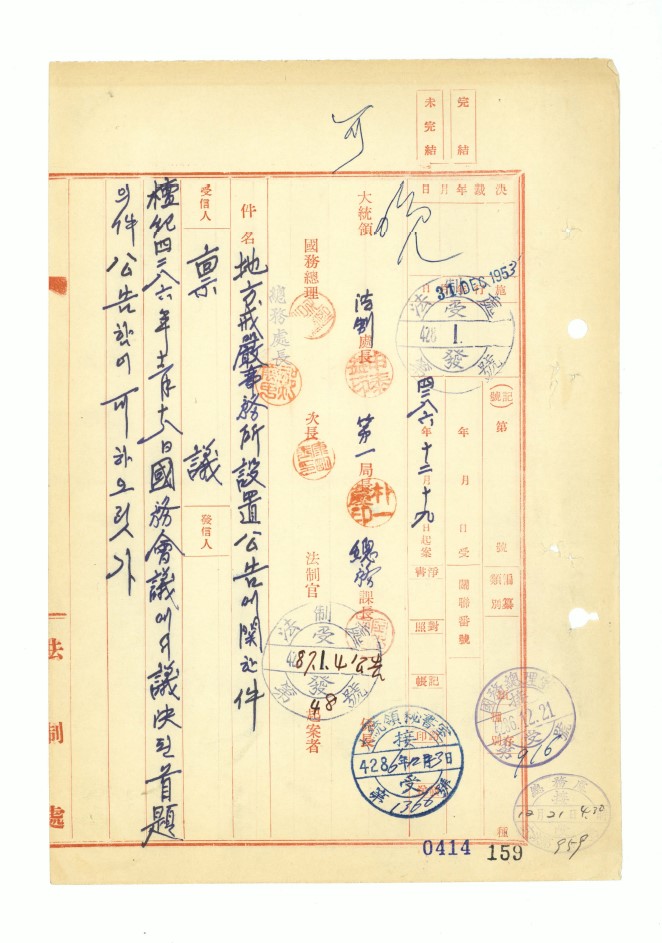 完結
未完結
可
決裁年月日
大統領
國務總理
總務處長
法制處長
次長
第一局長
法制官
總務課長
起案者
31 DEC 1953
法制處
受
428
1.
發
號
四二八六年十二月十九日起案
年 月 日 受
(記號)
第 號
關聯番號
淨書
對照
記帳
種
件名
地方戒嚴事務所設置公告에關한件
受信人
發信人
稟議
檀紀四二八六年十二月十八日國務會議에서議決된首題
의件公告함이可하오릿가
法制處
法制處
受
4287.1.4
公告
發
第48號
大統領秘書室
接
4286年12月23日
受
第1366號
國務總理室
4286.12.21
第916號
總務處
接
12月21日4.30
959
朴一慶印
0414
159